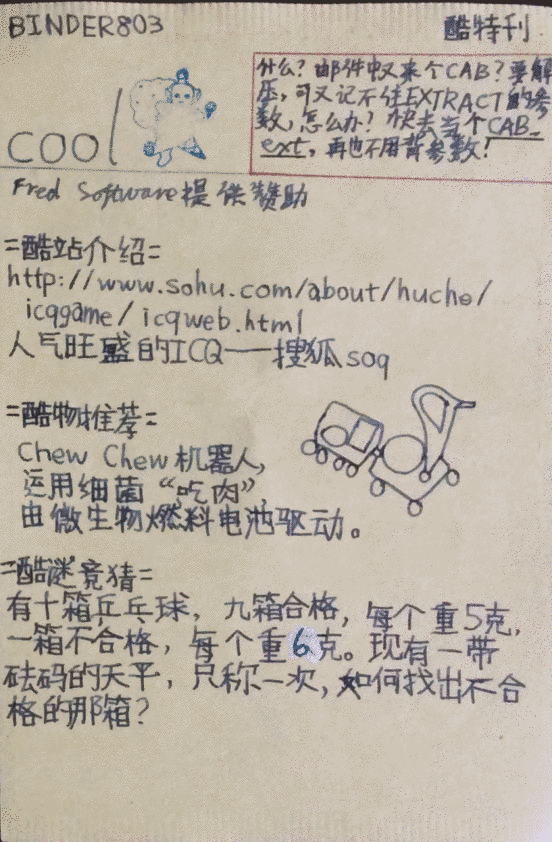 BINDER803
酷特刊
cool
什么?邮件中又来个CAB?要解
压,可又记不住EXTRACT的参
数,怎么办?快去当个CAB_
ext,再也不用背参数!
Fred Software提供赞助
=酷站介绍=
http://www.sohu.com/about/huche/
icqgame/icqweb.html
人气旺盛的ICQ——搜狐soq
=酷物推荐=
Chew Chew机器人,
运用细菌“吃肉”,
由微生物燃料电池驱动。
=酷谜竞猜=
有十箱乒乓球,九箱合格,每个重5克,
一箱不合格,每个重6克。现有一带
砝码的天平,只称一次,如何找出不合
格的那箱?